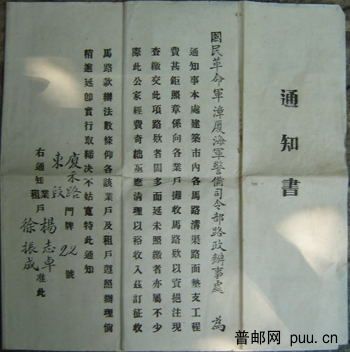 通知書
國民革命軍漳厦海軍警備司令部路政辦事處 為
通知事本處建築市內各馬路溝渠路面墊支工程
費甚鉅照章係向各業戶攤收馬路欵以資挹注現
查繳交此項路欵者固多而延未照繳者亦屬不少
際此公家經費奇絀亟應清理以裕收入茲訂征收
馬路欵辦法數條仰各該業戶及租戶遵照辦理倘
稍延卽實行取締决不姑寬特此通知
廈禾路
東段 門牌 22 號
右通知 業戶 楊志卓
租戶 徐振成 准此
普邮网 puu.cn